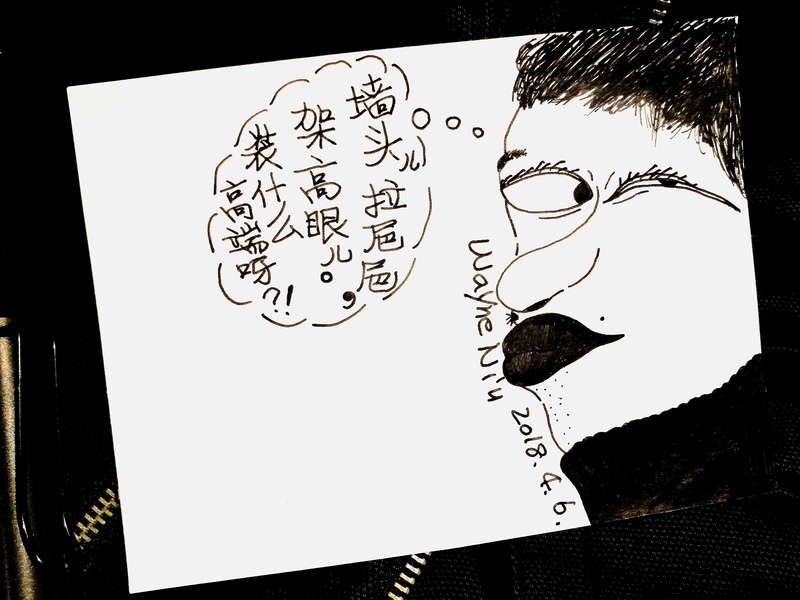 墙头儿拉㞎㞎，
架高眼儿。
装什么
高端呀?!
Wayne Niu 2018.4.6.